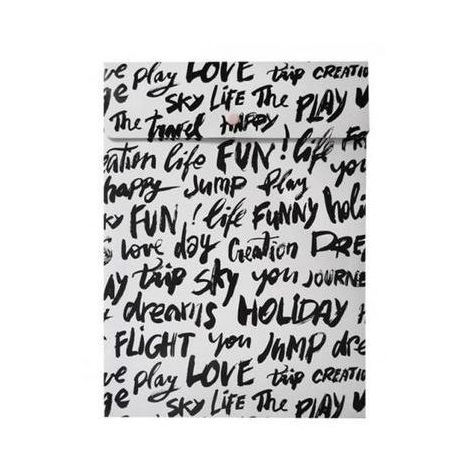 ve play LOVE trip CREATIO
ge SKY LIFE The PLAY
The travel HAPPY
eation life FUN! life FR
happy JUMP play you
KY FUN! life FUNNY holi
Love day Creation DRE
AY trip SKY you JOURNE
y dreams HOLIDAY
FLIGHT you JUMP dre
ve play LOVE trip CREATIO
ge SKY LIFE The PLAY